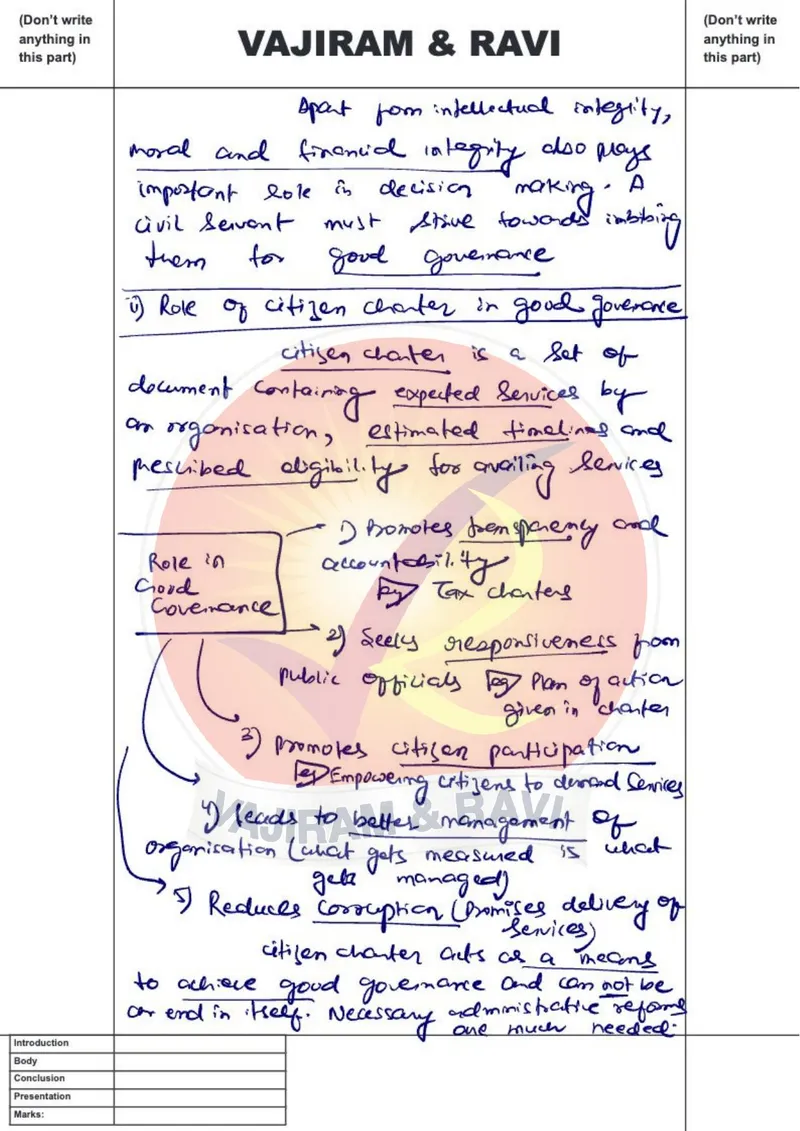 (Don't write
anything in
this part)
VAJIRAM & RAVI
(Don't write
anything in
this part)
Apart from intellectual integrity,
moral and financial integrity also plays
important role in decision making. A
civil servant must strive towards imbibing
them for good governance
ii) Role of citizen charter in good governance
citizen charter is a set of
document containing expected services by
an organisation, estimated timelines and
prescribed eligibility for availing services
Role in
Good
Governance
1) Promotes transparency and
accountability
eg Tax charters
2) Seeks responsiveness from
public officials eg Plan of action
given in charter
3) Promotes citizen participation
eg Empowering citizens to demand services
4) leads to better management of
organisation (what gets measured is what
gets managed)
5) Reduces corruption (promises delivery of
services)
citizen charter acts as a means
to achieve good governance and can not be
an end in itself. Necessary administrative reforms
are much needed.
VAJIRAM & RAVI
Introduction
Body
Conclusion
Presentation
Marks: